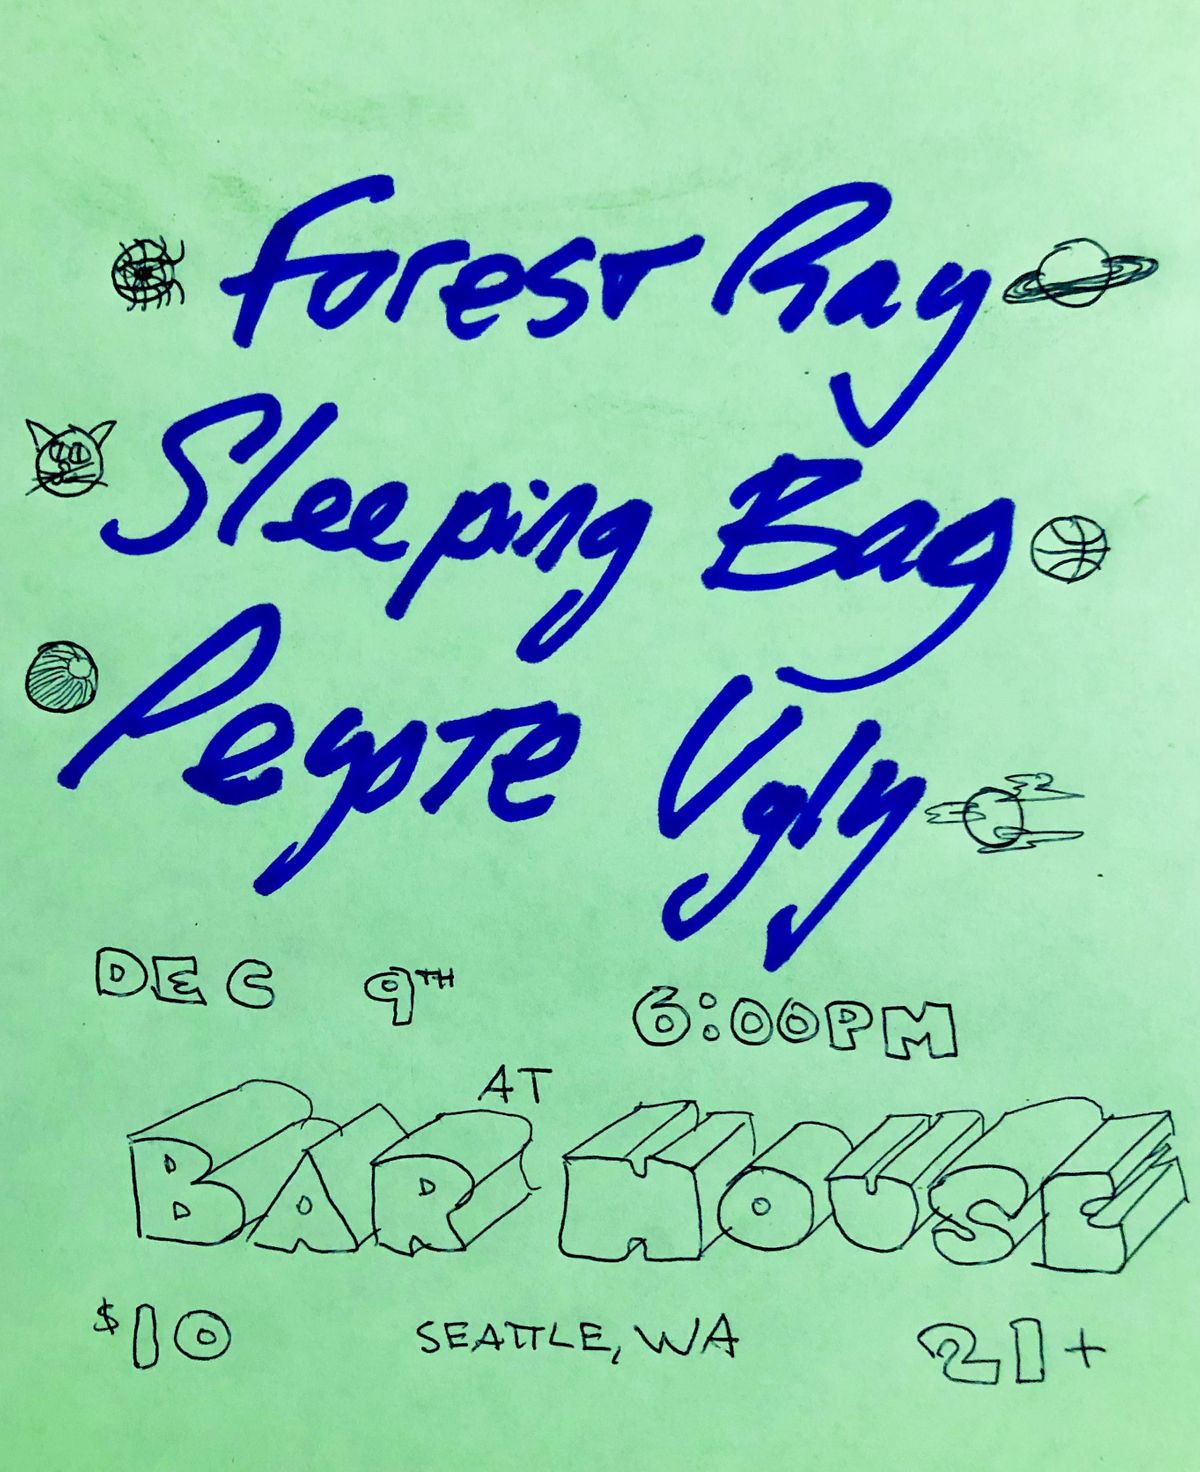 Forest Ray
Sleeping Bag
Peyote Ugly
DEC 9TH 6:00PM
AT
BAR HOUSE
$10 SEATTLE, WA 21+